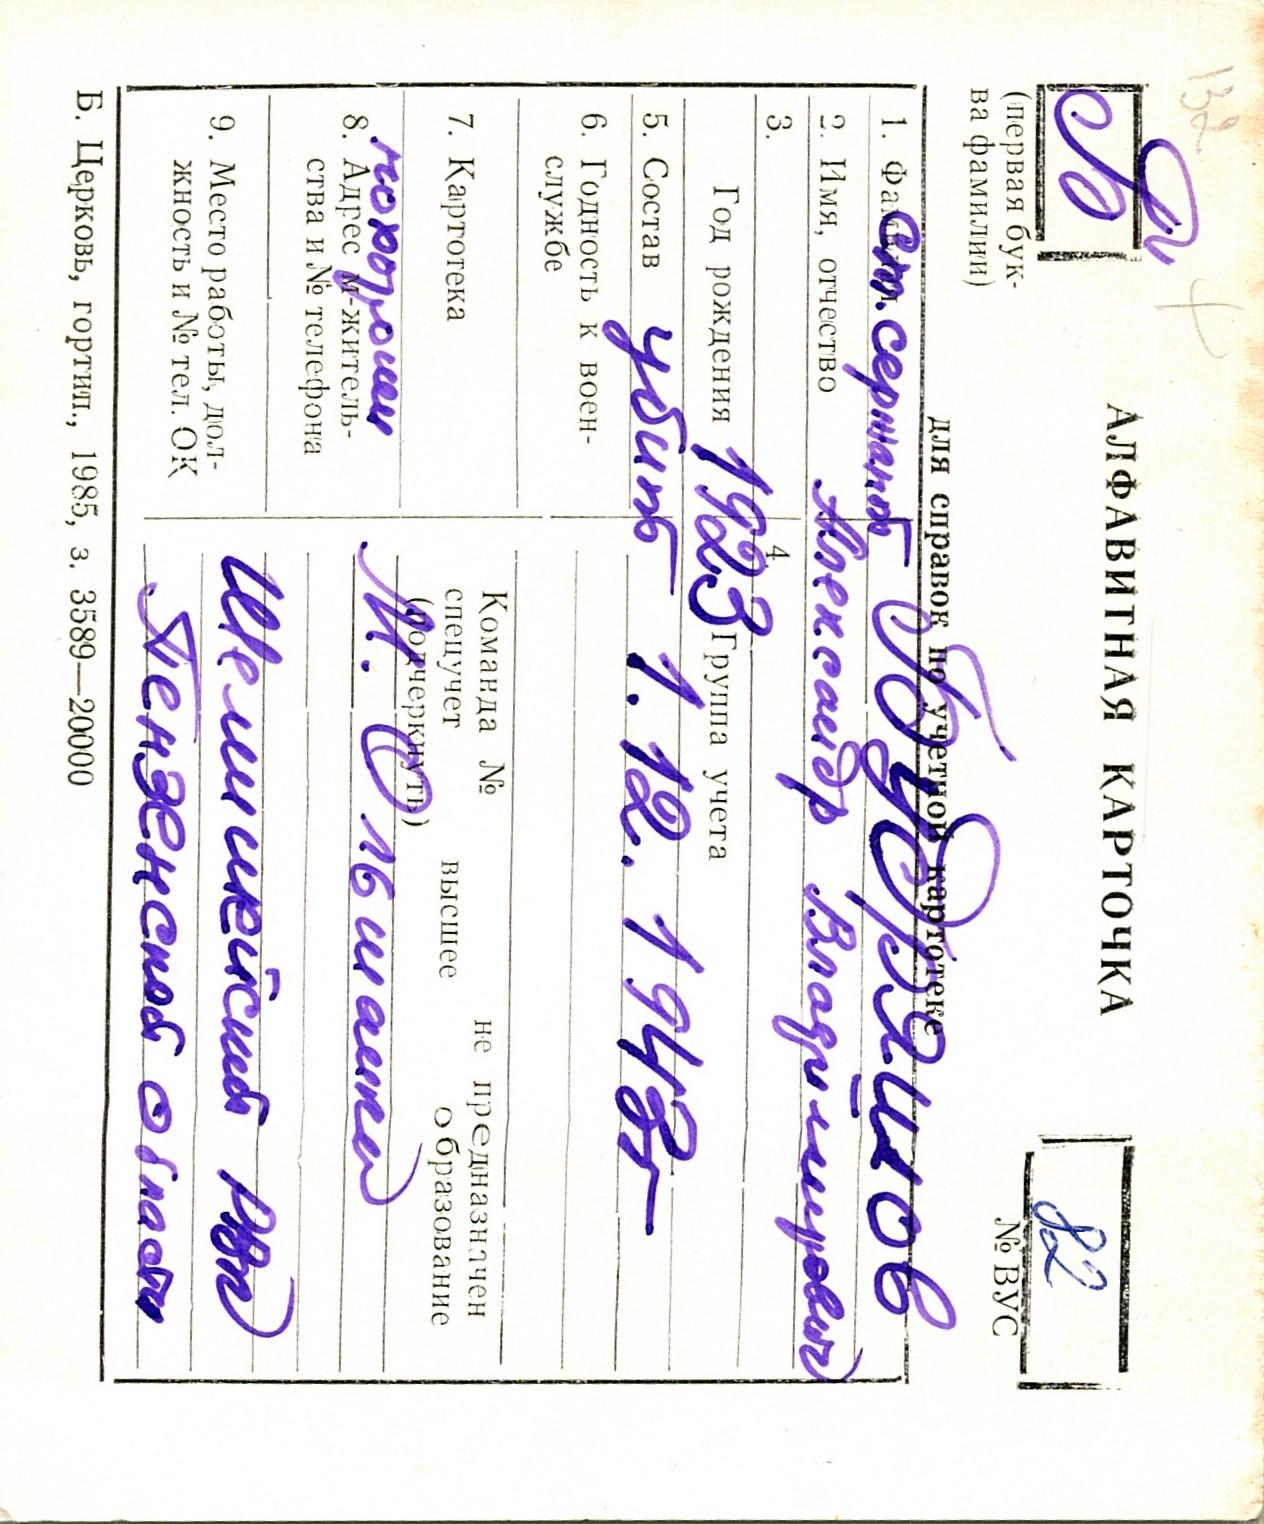 132
Б
(первая бук-
ва фамилии)
АЛФАВИТНАЯ КАРТОЧКА
для справок по учетной картотеке
82
№ ВУС
1. Фамилия ст. сержант Будряшов
2. Имя, отчество Александр Владимирович
3.
4
Год рождения 1923 Группа учета
5. Состав убит 1.12.1943
6. Годность к воен-
службе
7. Картотека
Команда № не предназначен
спецучет высшее образование
(подчеркнуть)
похоронен М. О
8. Адрес м-житель-
ства и № телефона
Шемышейский РВК
9. Место работы, дол-
жность и № тел. ОК
Пензенской области
Б. Церковь, гортип., 1985, з. 3589—20000